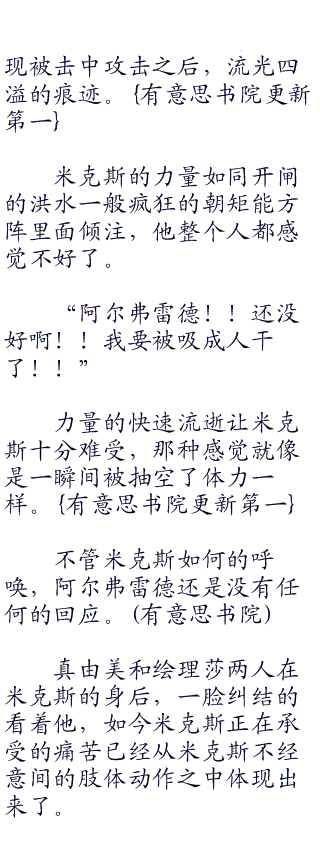 现被击中攻击之后，流光四
溢的痕迹。{有意思书院更新
第一}
米克斯的力量如同开闸
的洪水一般疯狂的朝矩能方
阵里面倾注，他整个人都感
觉不好了。
“阿尔弗雷德！！还没
好啊！！我要被吸成人干
了！！”
力量的快速流逝让米克
斯十分难受，那种感觉就像
是一瞬间被抽空了体力一
样。{有意思书院更新第一}
不管米克斯如何的呼
唤，阿尔弗雷德还是没有任
何的回应。(有意思书院)
真由美和绘理莎两人在
米克斯的身后，一脸纠结的
看着他，如今米克斯正在承
受的痛苦已经从米克斯不经
意间的肢体动作之中体现出
来了。